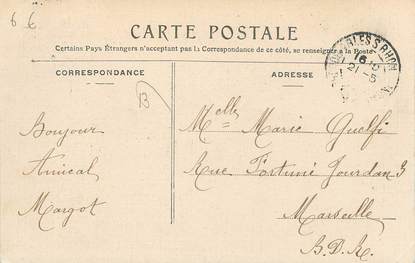 6 €
CARTE POSTALE
Certains Pays Étrangers n'acceptant pas la Correspondance de ce côté, se renseigner à la Poste
CORRESPONDANCE
ADRESSE
16
21-5
B
Bonjour
Amical
Margot
Melle Marie Guelfi
Rue Fortuné Jourdan 3
Marseille
B.D.R.